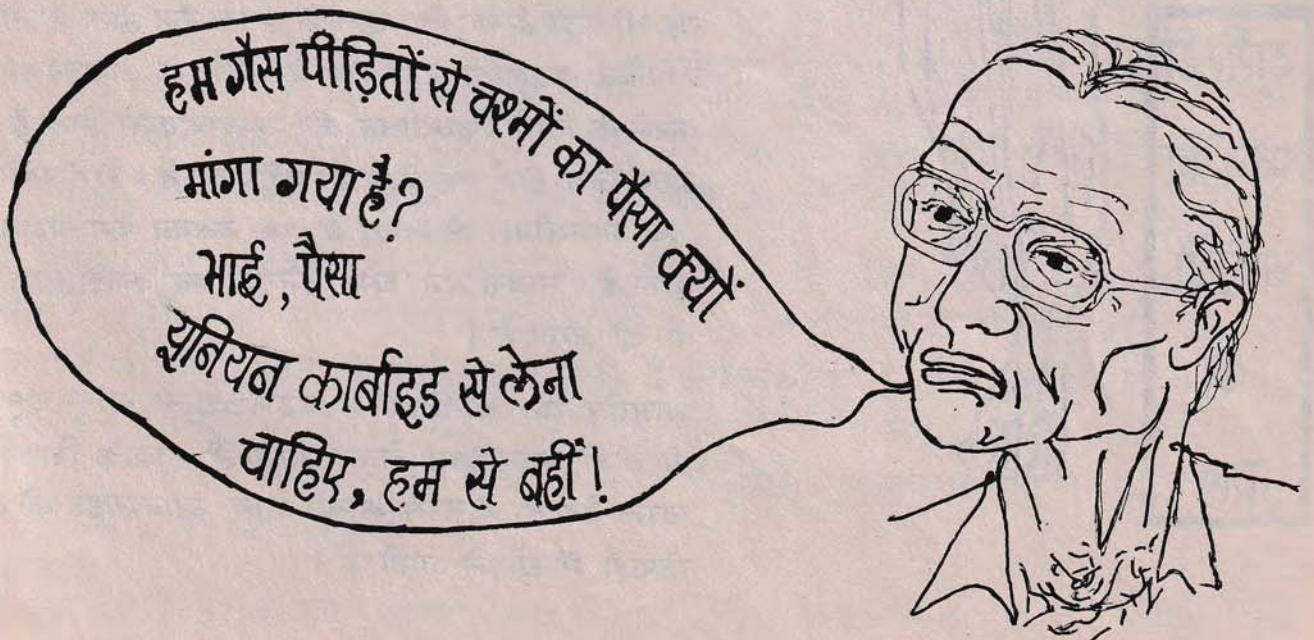 हम गैस पीड़ितों से चश्मों का पैसा क्यों
मांगा गया है?
भाई, पैसा
यूनियन कार्बाइड से लेना
चाहिए, हम से नहीं!